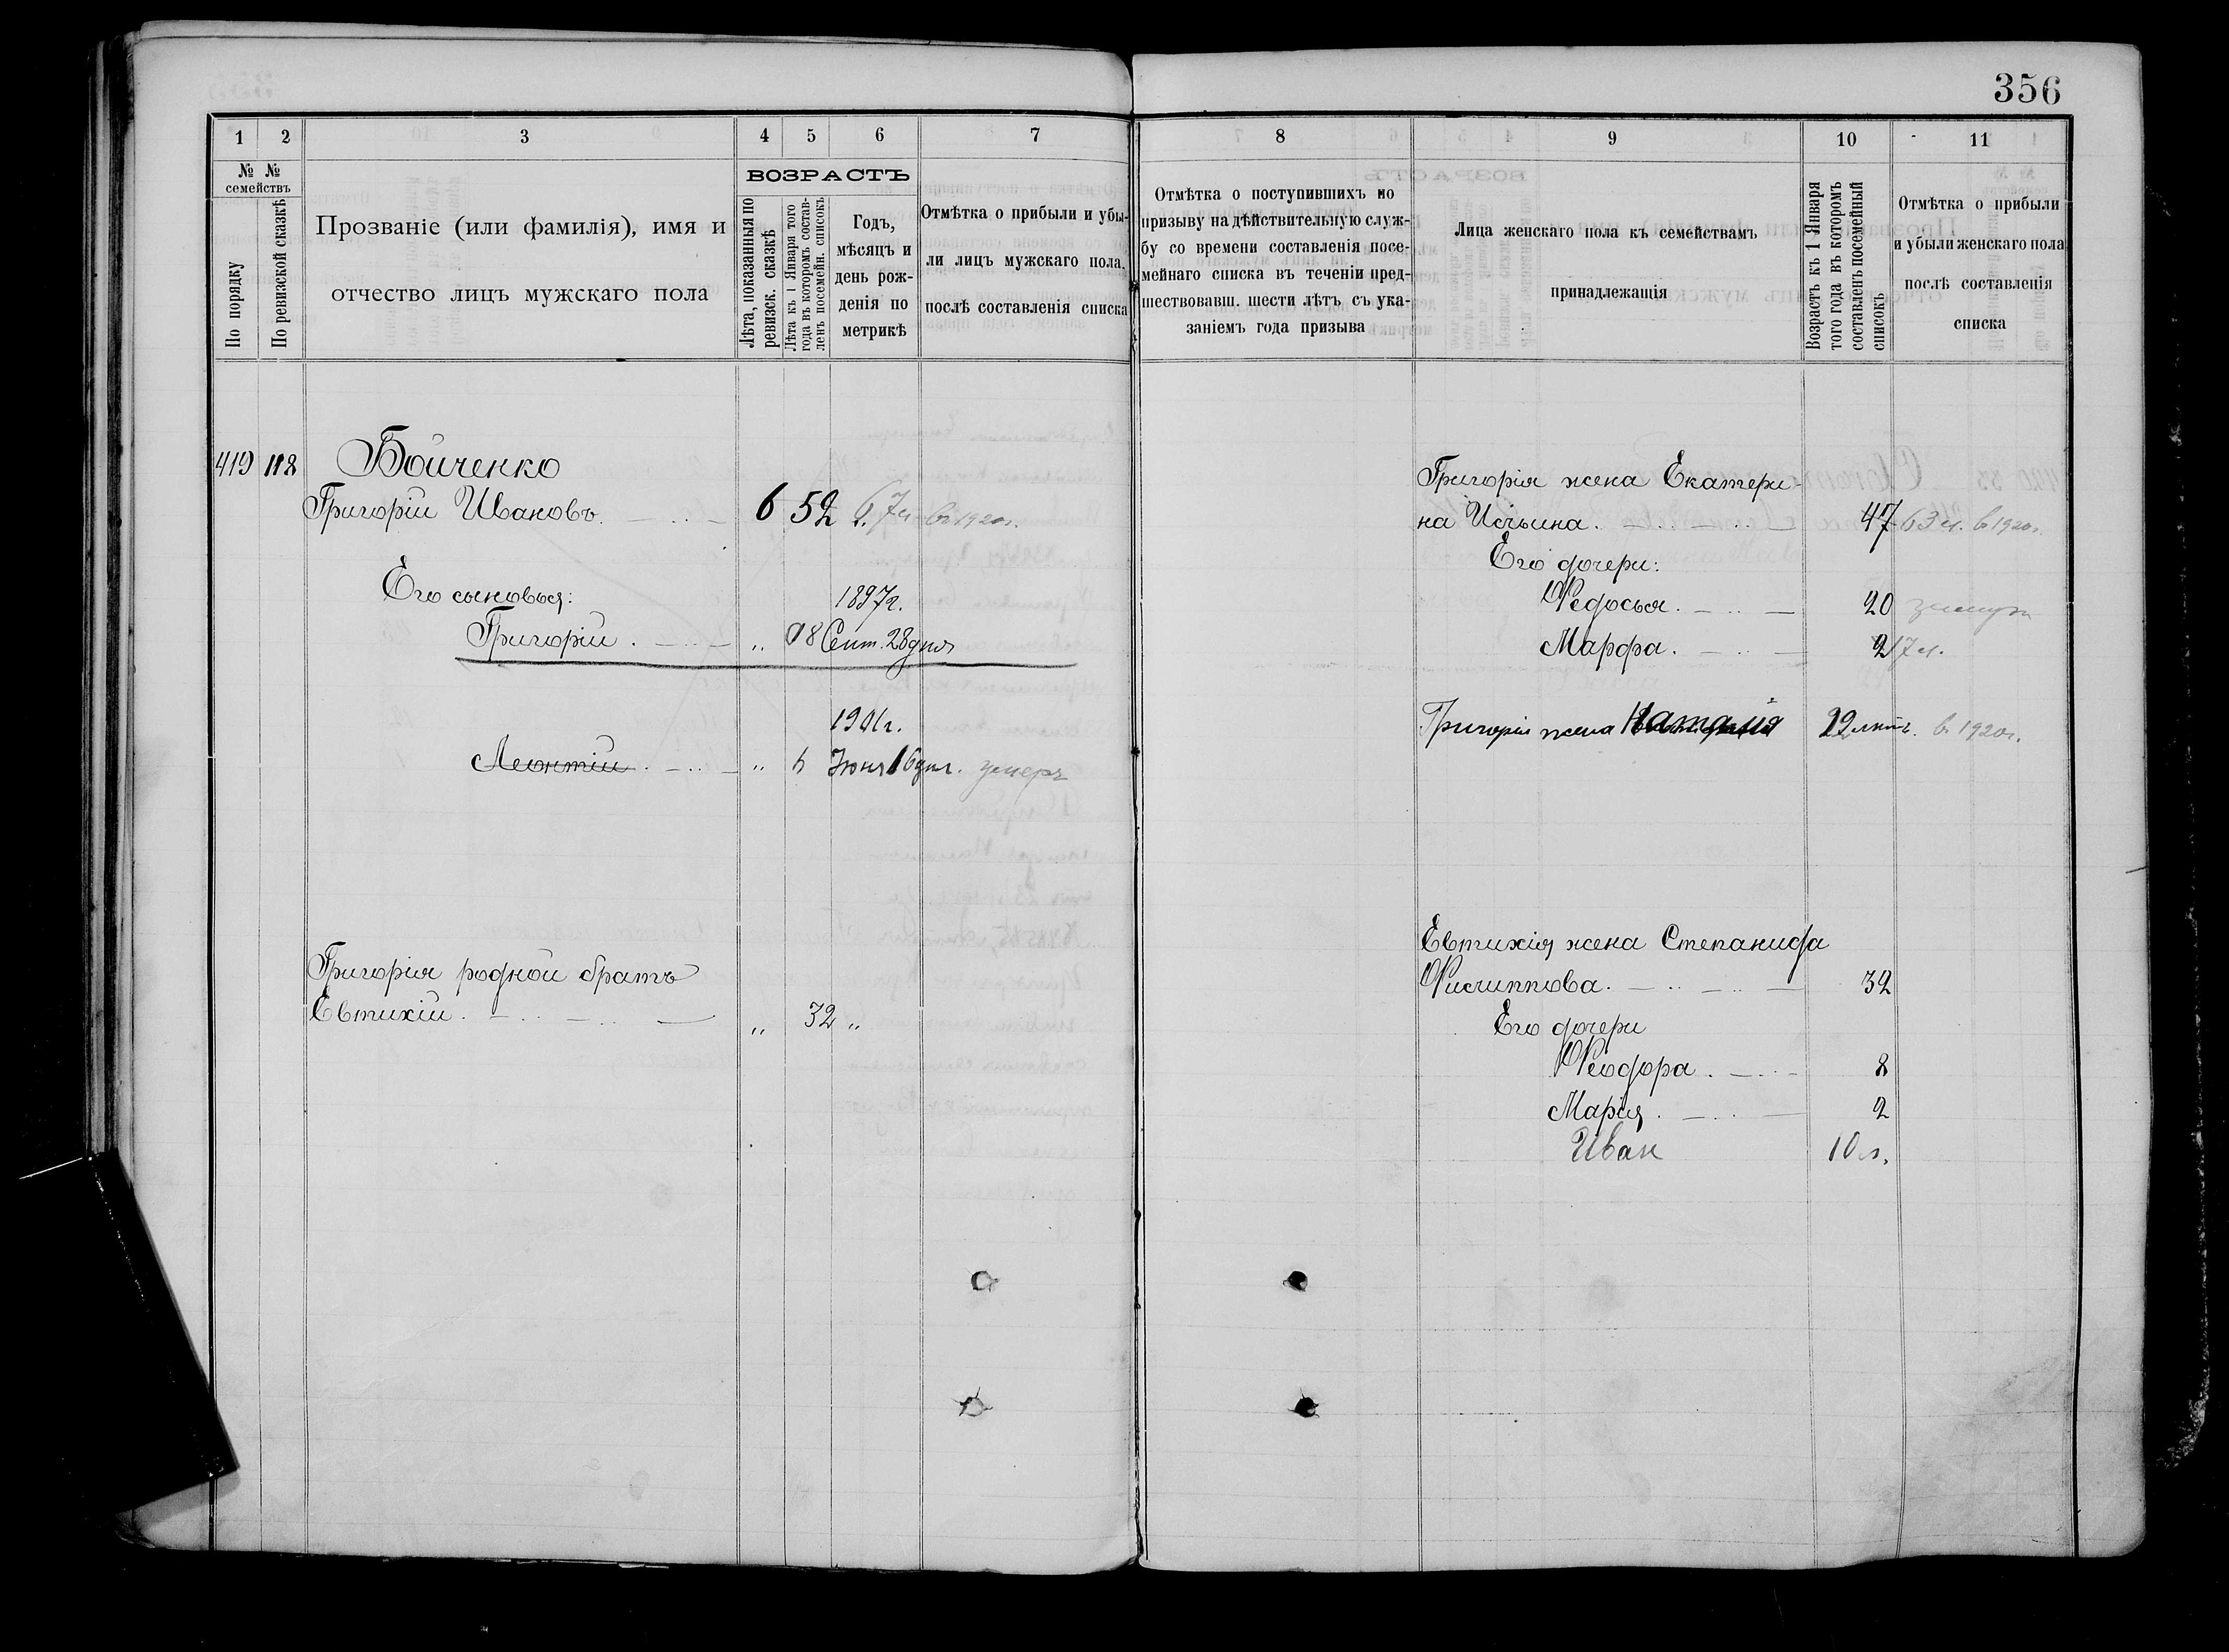 356
1 2 3 4 5 6 7
№ № семействъ
По порядку
По ревизской сказкѣ
Прозваніе (или фамилія), имя и
отчество лицъ мужскаго пола
ВОЗРАСТЪ
Лѣта, показанныя по
ревизск. сказкѣ
Лѣта къ 1 Января того
года въ которомъ состав-
ленъ посемейн. списокъ
Годъ,
мѣсяцъ и
день рож-
денія по
метрикѣ
Отмѣтка о прибыли и убы-
ли лицъ мужскаго пола,
послѣ составленія списка
419 118 Бойченко
Григорій Ивановъ. 6 52 67 л. въ 1920 г.
Его сыновья: 1897 г.
Григорій . „ 8 Сент. 28 дня
1901 г.
Леонтій . „ Іюня 16 дня. умеръ
Григорія родной братъ
Евтихій . „ 32 „
8 9 10 11
Отмѣтка о поступившихъ по
призыву на дѣйствительную служ-
бу со времени составленія посе-
мейнаго списка въ теченіи пред-
шествовавш. шести лѣтъ съ ука-
заніемъ года призыва
Лица женскаго пола къ семействамъ
принадлежащія
Возрастъ къ 1 Января
того года въ которомъ
составленъ посемейный
списокъ
Отмѣтка о прибыли
и убыли женскаго пола
послѣ составленія
списка
Григорія жена Екатери-
на Ильина . 47 63 л. в 1920 г.
Его дочери:
Федосья . 20 замуж
Марфа . 2 17 л.
Григорія жена Наталія 22 лѣтъ. в 1920 г.
Евтихія жена Степанида
Филиппова . 32
Его дочери
Феодора . 8
Марія . 2
Иван 10 л.